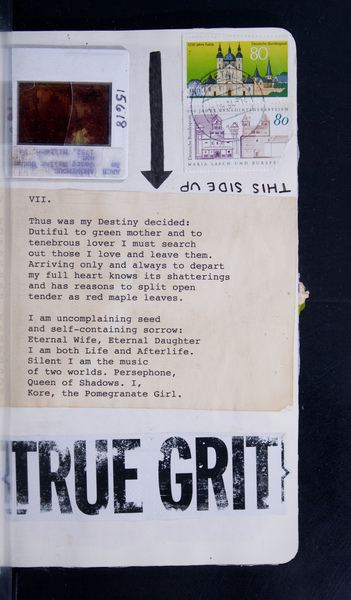 15618
80
Deutsche Bundespost
80
MARIA LAACH UND BURSFELDE
THIS SIDE UP
VII.
Thus was my Destiny decided:
Dutiful to green mother and to
tenebrous lover I must search
out those I love and leave them.
Arriving only and always to depart
my full heart knows its shatterings
and has reasons to split open
tender as red maple leaves.
I am uncomplaining seed
and self-containing sorrow:
Eternal Wife, Eternal Daughter
I am both Life and Afterlife.
Silent I am the music
of two worlds. Persephone,
Queen of Shadows. I,
Kore, the Pomegranate Girl.
TRUE GRIT